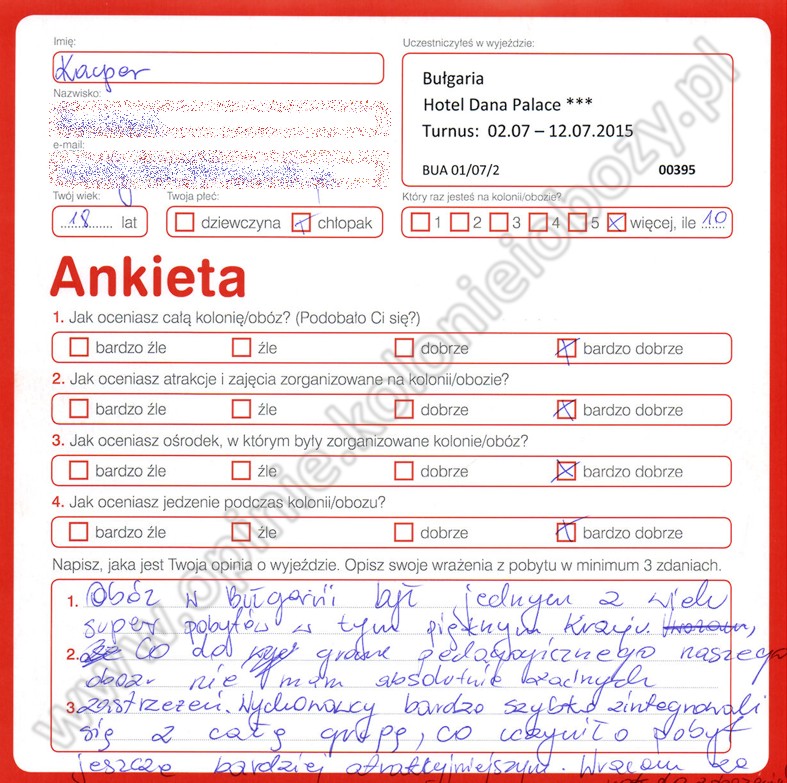 Imię:
Kacper
Nazwisko:
e-mail:
Twój wiek:
18 lat
Twoja płeć:
dziewczyna chłopak
Uczestniczyłeś w wyjeździe:
Bułgaria
Hotel Dana Palace ***
Turnus: 02.07 – 12.07.2015
BUA 01/07/2 00395
Który raz jesteś na kolonii/obozie?
1 2 3 4 5 więcej, ile 10
Ankieta
1. Jak oceniasz całą kolonię/obóz? (Podobało Ci się?)
bardzo źle źle dobrze bardzo dobrze
2. Jak oceniasz atrakcje i zajęcia zorganizowane na kolonii/obozie?
bardzo źle źle dobrze bardzo dobrze
3. Jak oceniasz ośrodek, w którym były zorganizowane kolonie/obóz?
bardzo źle źle dobrze bardzo dobrze
4. Jak oceniasz jedzenie podczas kolonii/obozu?
bardzo źle źle dobrze bardzo dobrze
Napisz, jaka jest Twoja opinia o wyjeździe. Opisz swoje wrażenia z pobytu w minimum 3 zdaniach.
1. Obóz w Bułgarii był jednym z wielu
super pobytów w tym pięknym kraju.
2. Co do grona pedagogicznego naszego
obozu nie mam absolutnie żadnych
3. zastrzeżeń. Wychowawcy bardzo szybko zintegrowali
się z całą grupą, co uczyniło pobyt
jeszcze bardziej atrakcyjniejszym. Wracam za
www.opinie.kolonieiobozy.pl